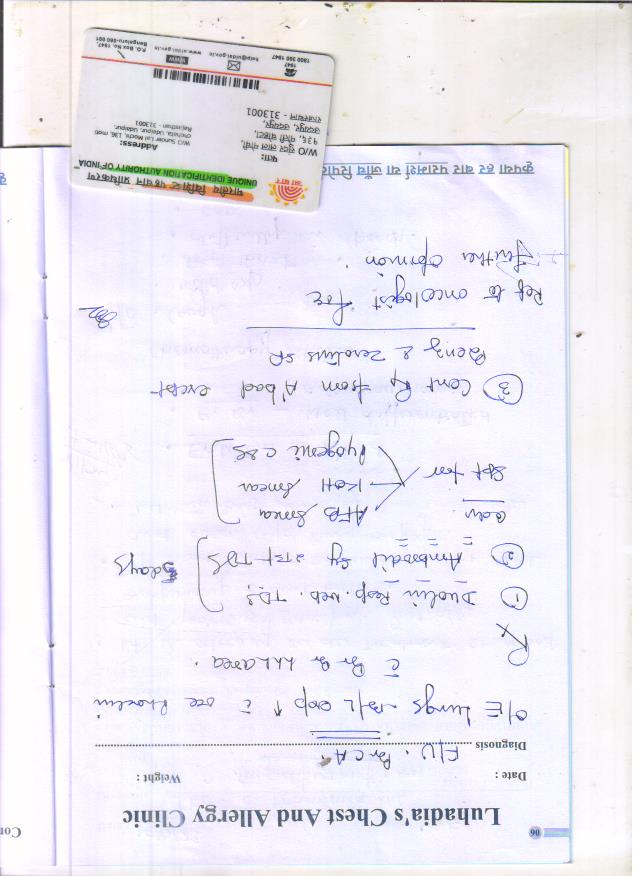 06
Luhadia's Chest And Allergy Clinic
Date :
Weight :
Diagnosis
F/U. Br CA.
O/E Lungs B/L exp ↑ c occ rhonchi
c Br Br LLL area.
Rx
① Duolin Resp. neb. TDS
② Ambrodil Sy 2TSF TDS
5 days
Adv.
Spt for
AFB Smear
KOH Smear
Pyogenic C&S
③ Cont Rx from A'bad except
& Zerotinus SR
Ref to oncologist for
further opinion.
कृपया हर बार परामर्श या जाँच रिपोर्ट
भारतीय विशिष्ट पहचान प्राधिकरण
UNIQUE IDENTIFICATION AUTHORITY OF INDIA
पता:
W/O सुन्दर लाल मोची,
१३६, मोची ओहटा,
उदयपुर, उदयपुर,
राजस्थान - 313001
Address:
W/O Sunder Lal Mochi, 136, moti
chohta, Udaipur, Udaipur,
Rajasthan - 313001
1947
1800 300 1947
help@uidai.gov.in
www
www.uidai.gov.in
P.O. Box No. 1947,
Bengaluru-560 001